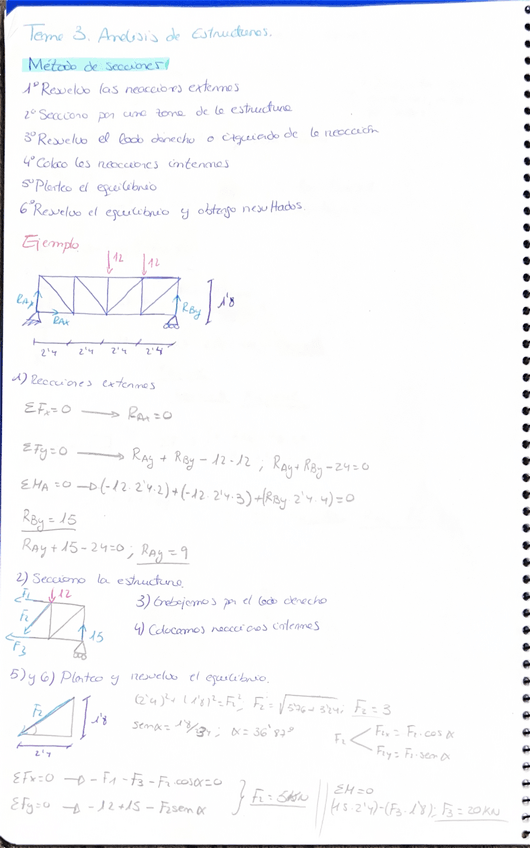 Tema 3. Análisis de Estructuras.
Método de secciones
1º Resuelvo las reacciones externas
2º Secciono por una zona de la estructura
3º Resuelvo el lado derecho o izquierdo de la reacción
4º Coloco las reacciones internas
5º Planteo el equilibrio
6º Resuelvo el equilibrio y obtengo resultados.
Ejemplo
12 12
RAy RAx RBy 1'8
2'4 2'4 2'4 2'4
1) Reacciones externas
ΣFx=0 → RAx=0
ΣFy=0 → RAy + RBy - 12 - 12 ; RAy+RBy-24=0
ΣMA=0 → (-12·2'4·2)+(-12·2'4·3)+(RBy·2'4·4)=0
RBy=15
RAy+15-24=0; RAy=9
2) Secciono la estructura.
F1 12 3) trabajemos por el lado derecho
F2 15 4) Colocamos reacciones internas
F3
5) y 6) Planteo y resuelvo el equilibrio.
F2 1'8 (2'4)²+(1'8)²=F2², F2=√5'76+3'24, F2=3
senα=1'8/3; α=36'87º F2 F2x=F2·cosα
2'4 F2y=F2·senα
ΣFx=0 → -F1-F3-F2·cosα=0
ΣFy=0 → -12+15-F2senα } F2=5KN
ΣM=0
(15·2'4)-(F3·1'8); F3=20KN